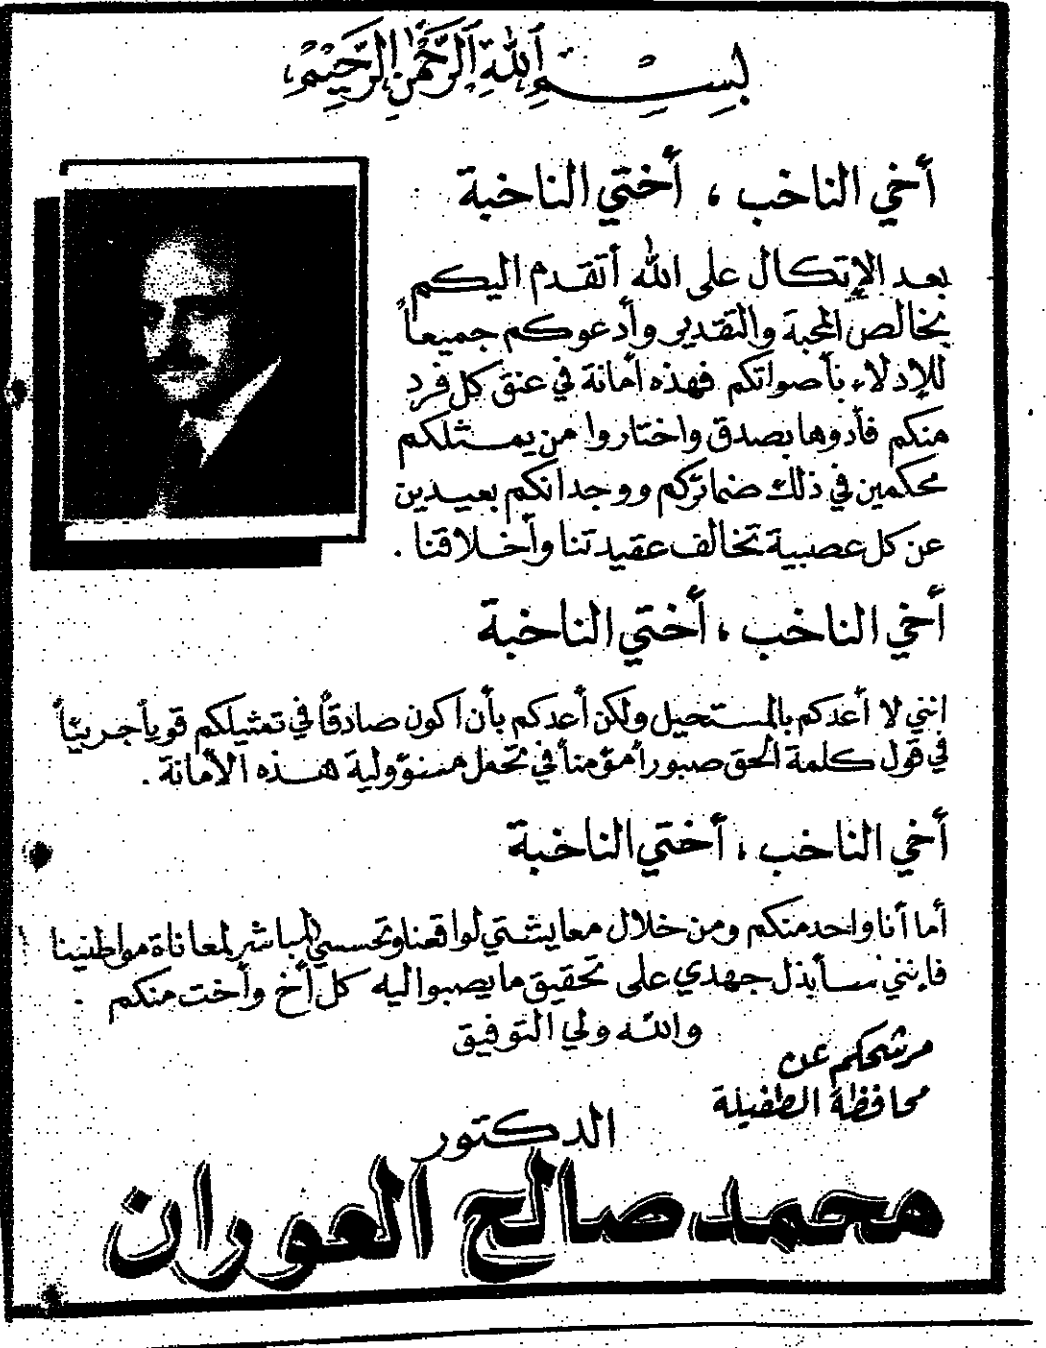 بسم الله الرحمن الرحيم
أخي الناخب ، أختي الناخبة
بعد الإتكال على الله أتقدم اليكم
بخالص المحبة والتقدير وأدعوكم جميعاً
للإدلاء بأصواتكم فهذه أمانة في عنق كل فرد
منكم فأدوها بصدق واختاروا من يمثلكم
محكمين في ذلك ضمائركم ووجدانكم بعيدين
عن كل عصبية تخالف عقيدتنا وأخلاقنا .
أخي الناخب ، أختي الناخبة
انني لا أعدكم بالمستحيل ولكن أعدكم بأن اكون صادقاً في تمثيلكم قوياً جريئاً
في قول كلمة الحق صبوراً مؤمناً في تحمل مسؤولية هذه الأمانة .
أخي الناخب ، أختي الناخبة
أما أنا واحد منكم ومن خلال معايشتي لواقعنا وتحسسي المباشر لمعاناة مواطنينا
فإنني سأبذل جهدي على تحقيق ما يصبوا اليه كل أخ وأخت منكم .
والله ولي التوفيق
مرشحكم عن
محافظة الطفيلة
الدكتور
محمد صالح العوران